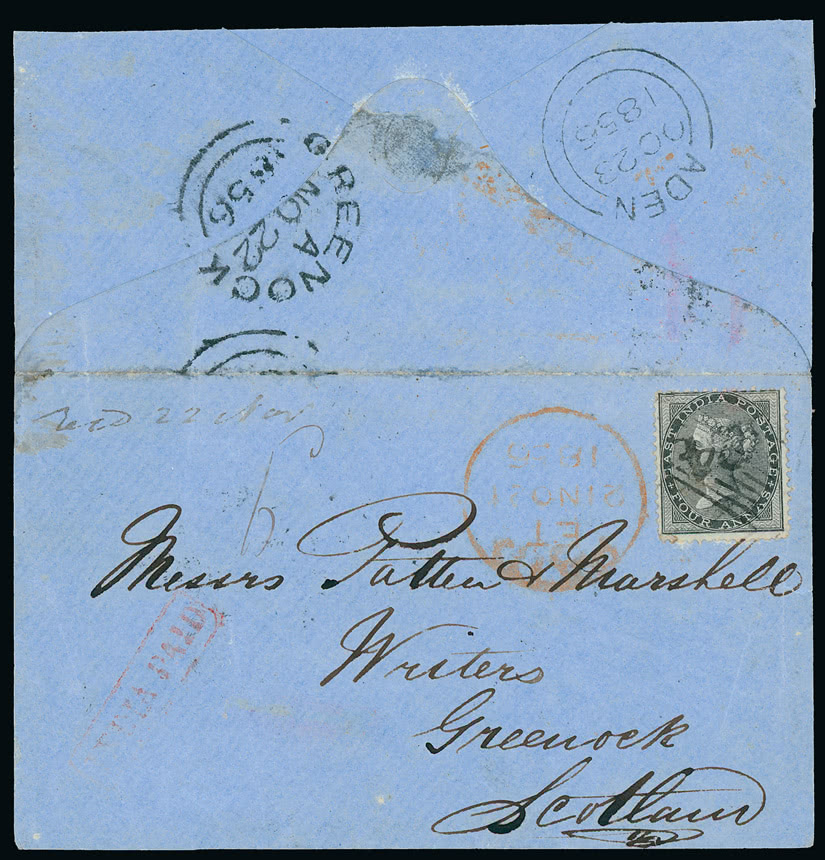 ADEN
OC 23
1855
GREENOCK
A
NO 22
56
Recd 22 Nov
6
EAST INDIA POSTAGE
FOUR ANNAS
ET
21 NO 21
Messrs Patten & Marshall
INDIA PAID
Writers
Greenock
Scotland